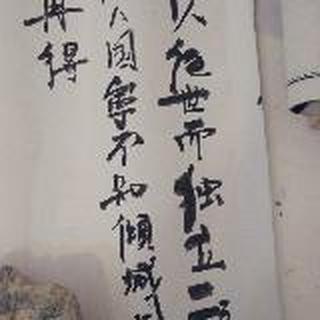 人绝世而独立一
人国寧不知倾城
再得